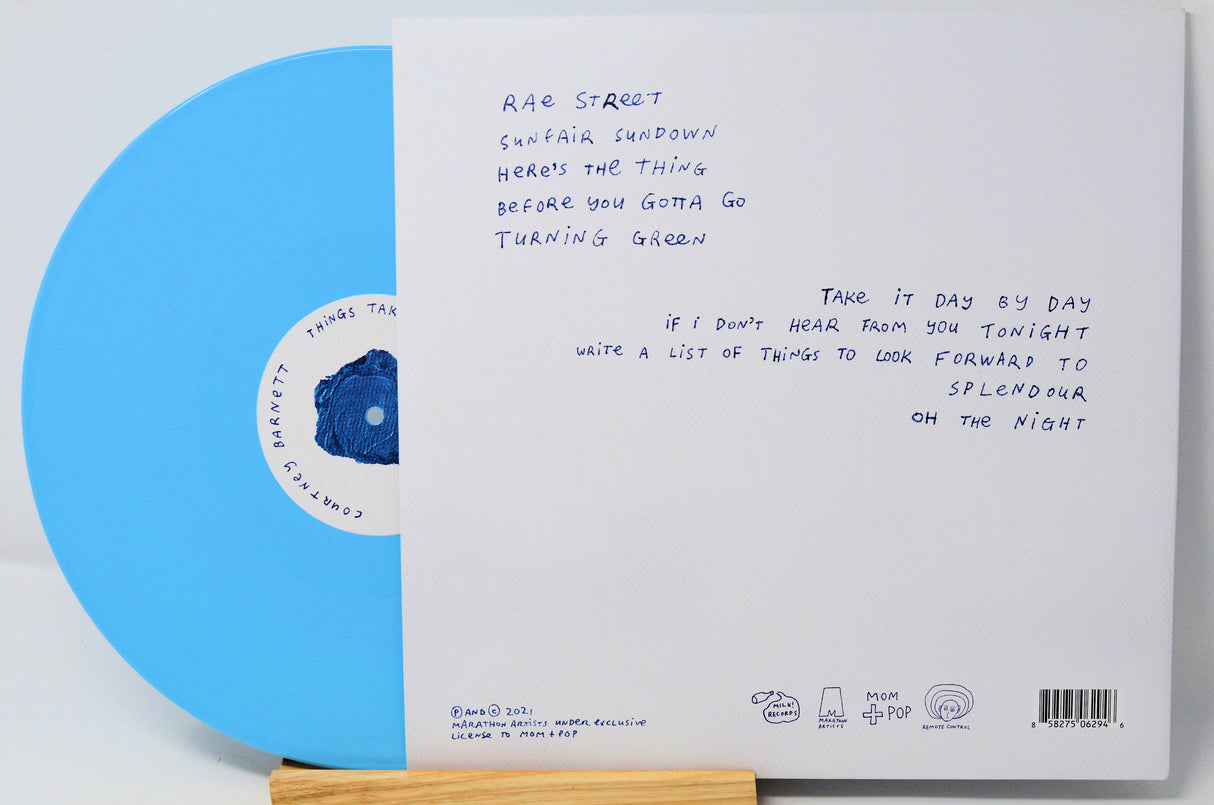 RAe STReeT
SUNFAiR SUNDOWN
HeRe's THe THiNG
BeFORe YOU GOTTA GO
TURNiNG GReeN
TAKe iT DAY BY DAY
iF i DON'T HeAR FROM YOU TONiGHT
WRiTe A LiST OF THiNGS TO LOOK FORWARD TO
SPLeNDOUR
OH THe NiGHT
THiNGS TAK
COURTNeY BARNeTT
Ⓟ AND © 2021
MARATHON ARTiSTS UNDeR eXCLUSiVe
LiCeNSe TO MOM + POP
MiLK!
RECORDS
MARATHON
ARTiSTS
MOM
+ POP
REMOTE CONTROL
8 58275 06294 6